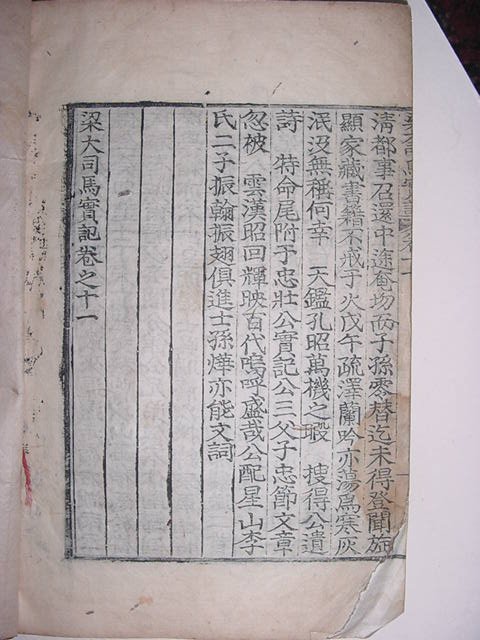 清都事召還中途奄忽而子孫零替迄未得登聞旌
顯家藏書籍不戒于火戊午疏澤蘭吟亦蕩爲寒灰
泯沒無稱何幸　天鑑孔昭萬機之暇　搜得公遺
詩　特命尾附于忠壯公實記公三父子忠節文章
忽被　雲漢昭回輝映百代嗚呼盛哉公配星山李
氏二子振翰振翅俱進士孫燁亦能文詞
梁大司馬實記卷之十一